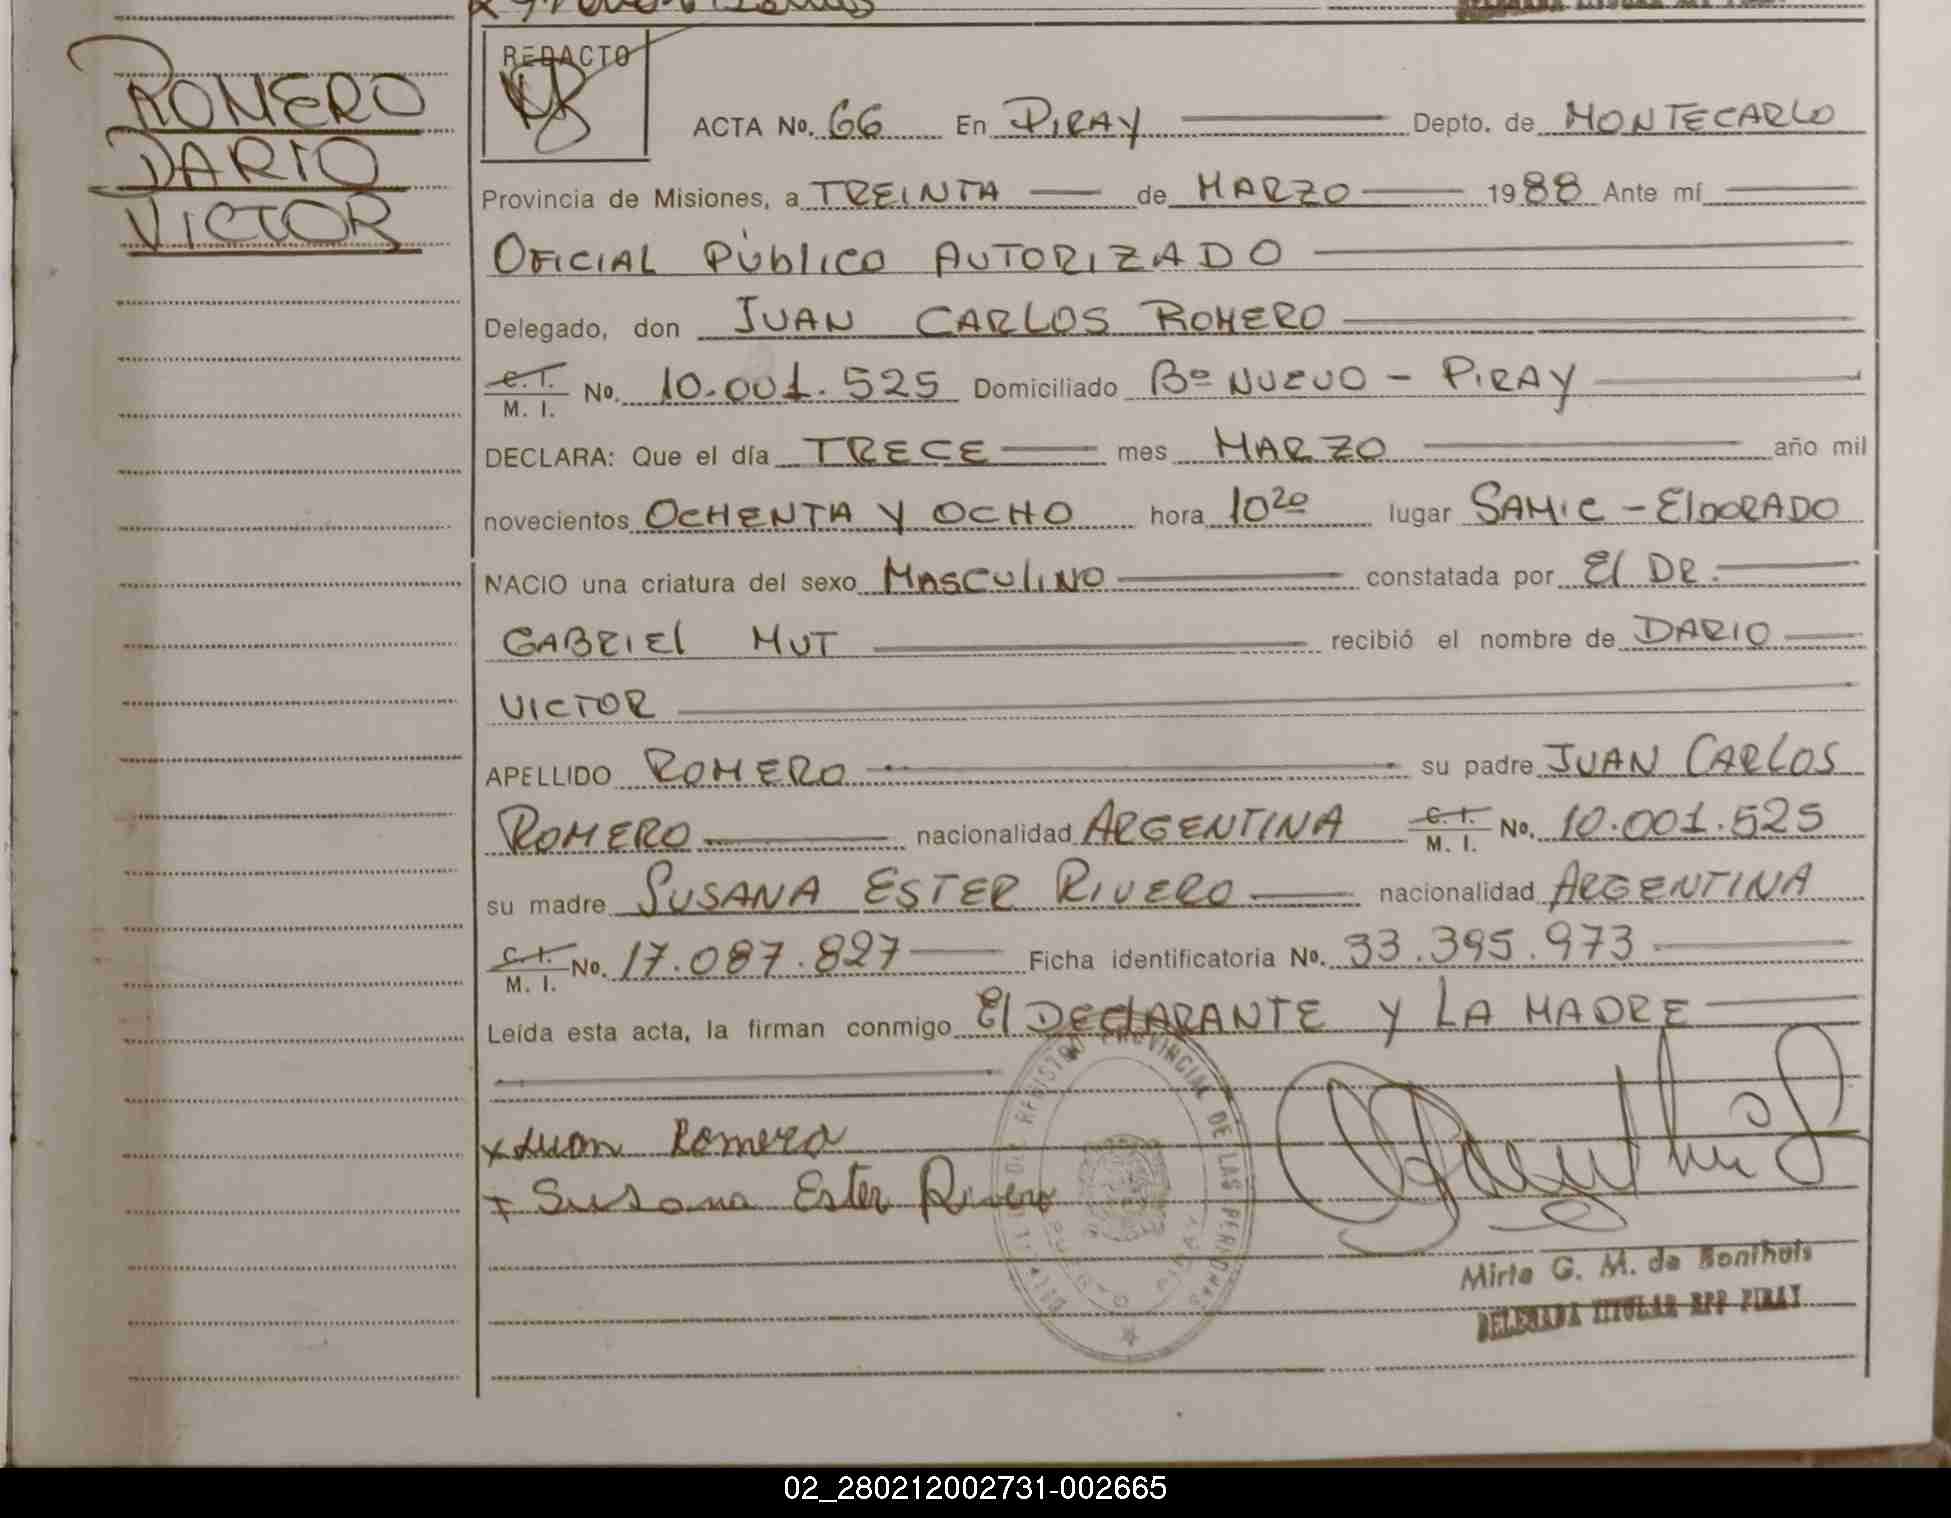 ROMERO
DARIO
VICTOR
REDACTO
ACTA No. 66 En PIRAY Depto. de MONTECARLO
Provincia de Misiones, a TREINTA de MARZO 1988 Ante mí
OFICIAL PÚblICO AUTORIZADO
Delegado, don JUAN CARLOS ROMERO
C.I. M. I. No. 10.001.525 Domiciliado Bº NUEVO - PIRAY
DECLARA: Que el día TRECE mes MARZO año mil
novecientos OCHENTA Y OCHO hora 10 20 lugar SAMIC - ElDORADO
NACIO una criatura del sexo MASCUlINO constatada por El DR.
GABRIEl MUT recibió el nombre de DARIO
VICTOR
APELLIDO ROMERO su padre JUAN CARLOS
ROMERO nacionalidad ARGENTINA C.I. M. I. No. 10.001.525
su madre SUSANA ESTER RIVERO nacionalidad ARGENTINA
C.I. M. I. No. 17.087.827 Ficha identificatoria No. 33.395.973
Leída esta acta, la firman conmigo El DEClARANTE Y LA MADRE
x Juan Romero
+ Susana Ester Rivero
REGISTRO PROVINCIAL DE LAS PERSONAS
Mirta G. M. de Bonthuis
DELEGADA TITULAR RPP PIRAY
02_280212002731-002665